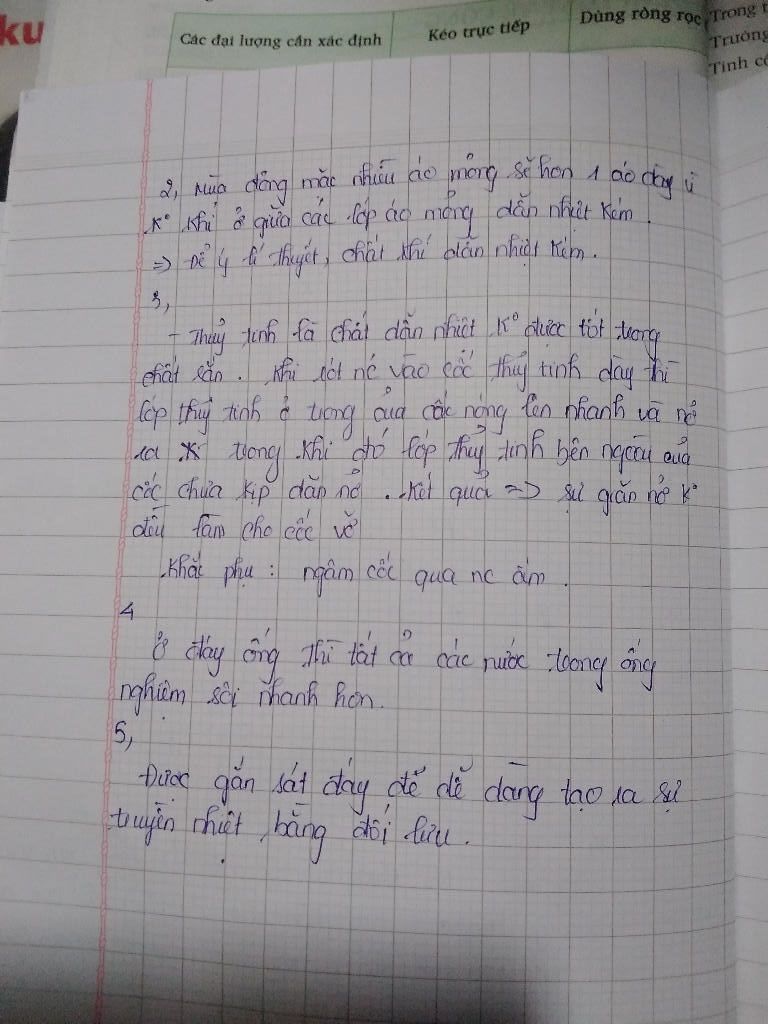 ku
Các đại lượng cần xác định
Kéo trực tiếp
Dùng ròng rọc
Trong t
Trường
Tính cô
2, Mùa đông mặc nhiều áo mỏng sẽ hơn 1 áo dày vì
K° khí ở giữa các lớp áo mỏng dẫn nhiệt kém.
=> Để ý lí thuyết, chất khí dẫn nhiệt kém.
3,
- Thuỷ tinh là chất dẫn nhiệt K° được tốt trong
chất rắn. Khi rót nc vào cốc thuỷ tinh dày thì
lớp thuỷ tinh ở trong của cốc nóng lên nhanh và nở
ra trong khi đó lớp thuỷ tinh bên ngoài của
cốc chưa kịp dãn nở. Kết quả => sự giãn nở K°
đều làm cho cốc vỡ
Khắc phụ : ngâm cốc qua nc ấm.
4
Ở đáy ống thì tất cả các nước trong ống
nghiệm sôi nhanh hơn.
5,
Được gắn sát đáy để dễ dàng tạo ra sự
truyền nhiệt bằng đối lưu.